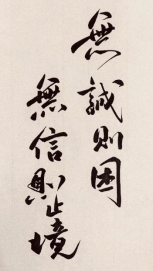 無誠則困
無信則止境